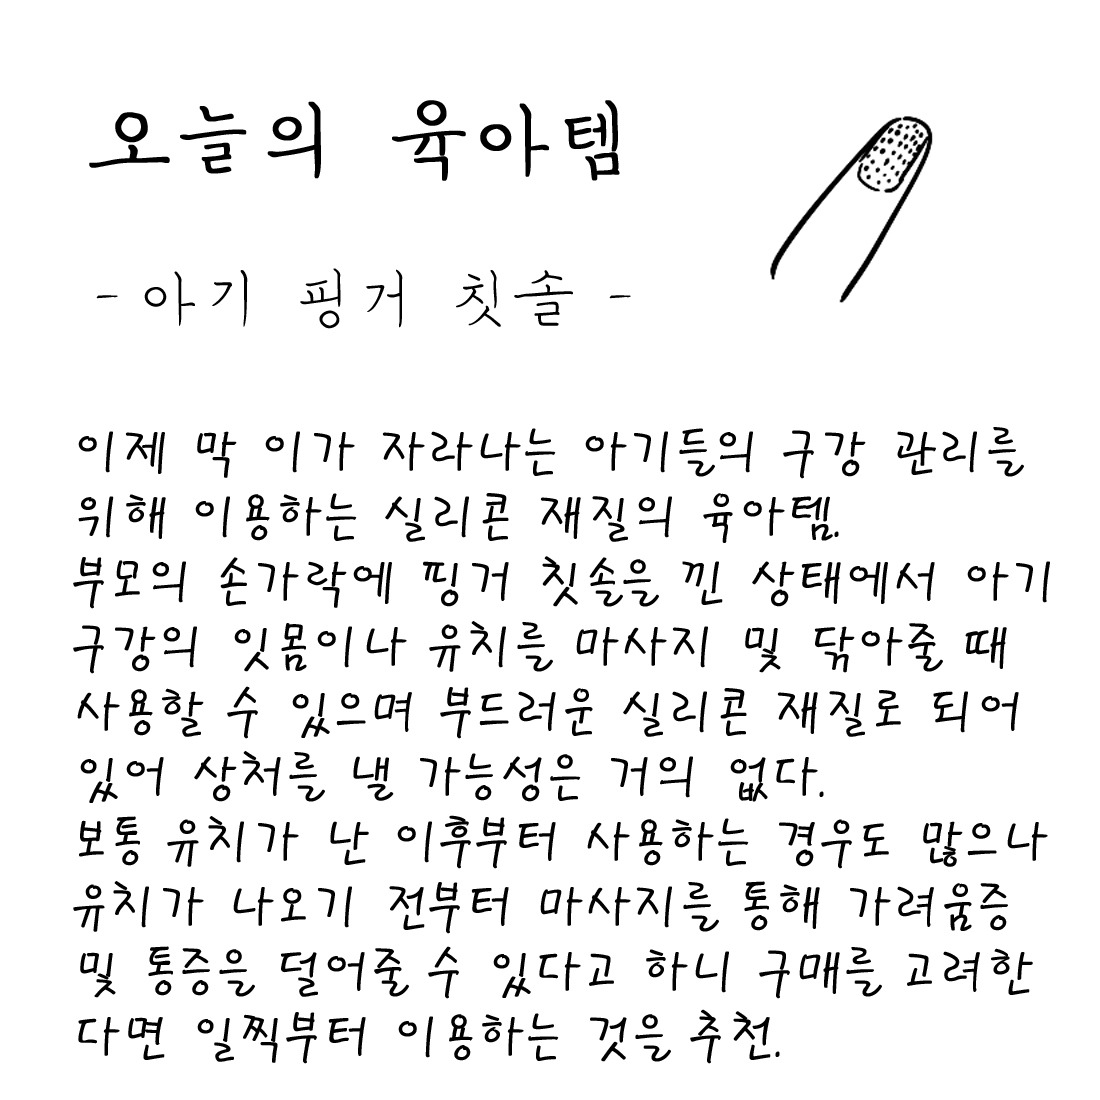 오늘의 육아템
- 아기 핑거 칫솔 -
이제 막 이가 자라나는 아기들의 구강 관리를
위해 이용하는 실리콘 재질의 육아템.
부모의 손가락에 핑거 칫솔을 낀 상태에서 아기
구강의 잇몸이나 유치를 마사지 및 닦아줄 때
사용할 수 있으며 부드러운 실리콘 재질로 되어
있어 상처를 낼 가능성은 거의 없다.
보통 유치가 난 이후부터 사용하는 경우도 많으나
유치가 나오기 전부터 마사지를 통해 가려움증
및 통증을 덜어줄 수 있다고 하니 구매를 고려한
다면 일찍부터 이용하는 것을 추천.